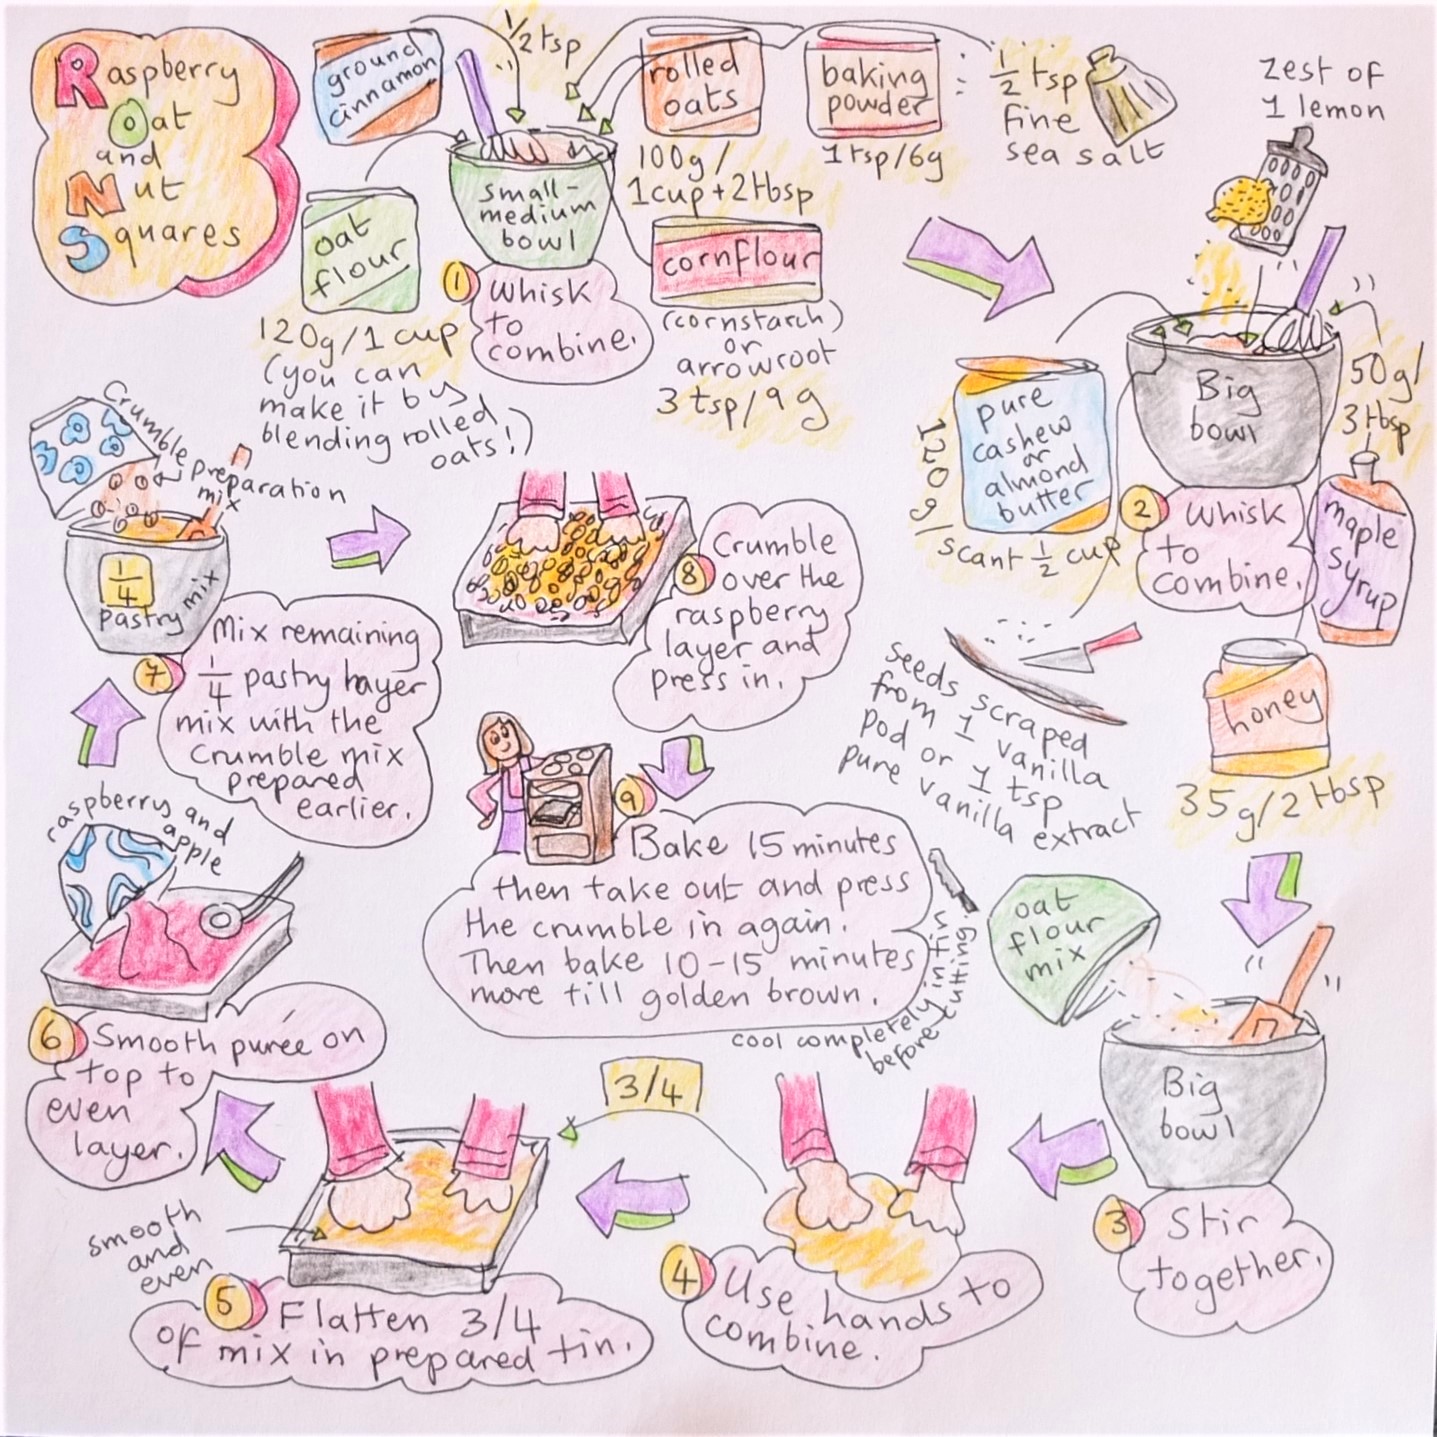 Raspberry
Oat
and
Nut
Squares
ground
cinnamon
1/2 tsp
rolled
oats
100g/
1 cup + 2 tbsp
baking
powder
1 tsp/6g
1/2 tsp
fine
sea salt
oat
flour
120g/1 cup
(you can
make it by
blending rolled
oats!)
small-
medium
bowl
cornflour
(cornstarch)
or
arrowroot
3 tsp/9g
1
Whisk
to
combine.
zest of
1 lemon
Big
bowl
pure
cashew
or
almond
butter
120g/scant 1/2 cup
50g/
3 tbsp
maple
syrup
2
Whisk
to
combine.
seeds scraped
from 1 vanilla
pod or 1 tsp
pure vanilla extract
honey
35g/2 tbsp
oat
flour
mix
Big
bowl
3
Stir
together.
4
Use hands to
combine.
3/4
smooth
and
even
5
Flatten 3/4
of mix in prepared tin.
raspberry and
apple
6
Smooth purée on
top to
even
layer.
Crumble preparation
mix
1/4
pastry mix
7
Mix remaining
1/4 pastry layer
mix with the
crumble mix
prepared
earlier.
8
Crumble
over the
raspberry
layer and
press in.
9
Bake 15 minutes
then take out and press
the crumble in again.
Then bake 10-15 minutes
more till golden brown.
cool completely in tin
before cutting.